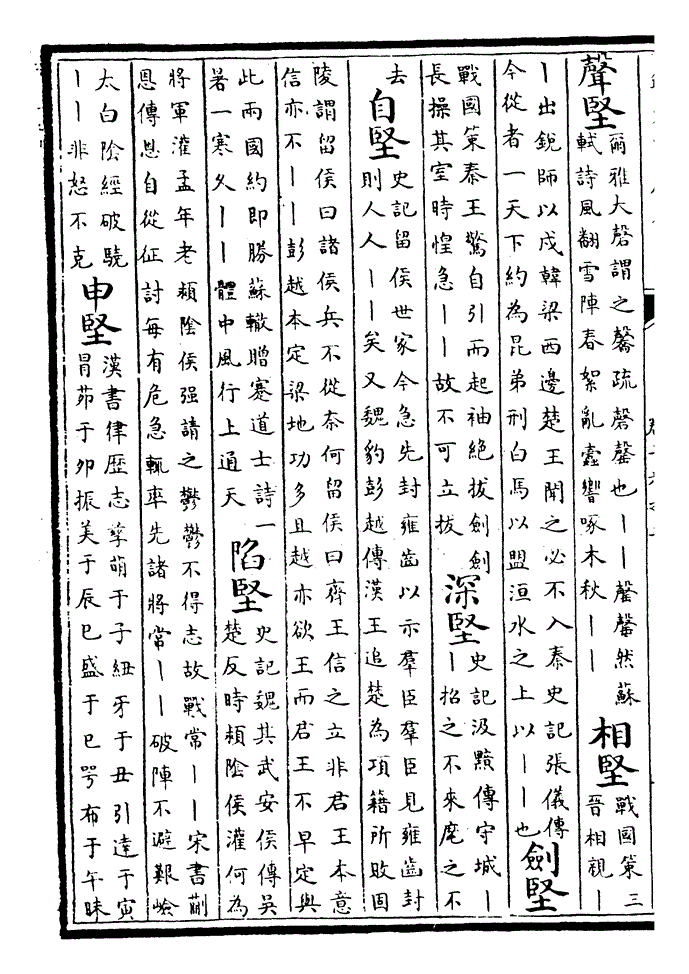 聲堅
爾雅大磬謂之毊疏磬罄也丨丨罄罄然蘇
軾詩風翻雪陣春絮亂蠹響啄木秋丨丨
相堅
戰國策三
晉相視丨
丨出銳師以戍韓梁西邊楚王聞之必不入秦史記張儀傳
今從者一天下約為昆弟刑白馬以盟洹水之上以丨丨也
劍堅
戰國策秦王驚自引而起袖絶拔劍劍
長操其室時惶急丨丨故不可立拔
深堅
史記汲黯傳守城丨
丨招之不來麾之不
去
自堅
史記留侯世家今急先封雍齒以示羣臣羣臣見雍齒封
則人人丨丨矣又魏豹彭越傳漢王追楚為項籍所敗固
陵謂留侯曰諸侯兵不從奈何留侯曰齊王信之立非君王本意
信亦不丨丨彭越本定梁地功多且越亦欲王而君王不早定與
此兩國約即勝蘇轍贈蹇道士詩一
暑一寒久丨丨體中風行上通天
陷堅
史記魏其武安侯傳吳
楚反時頴陰侯灌何為
將軍灌孟年老頴陰侯强請之鬱鬱不得志故戰常丨丨宋書蒯
恩傳恩自從征討每有危急輒率先諸將常丨丨破陣不避艱嶮
太白陰經破驍
丨丨非怒不克
申堅
漢書律歷志孳萌于子紐牙于丑引達于寅
冒茆于夘振美于辰已盛于巳咢布于午昧